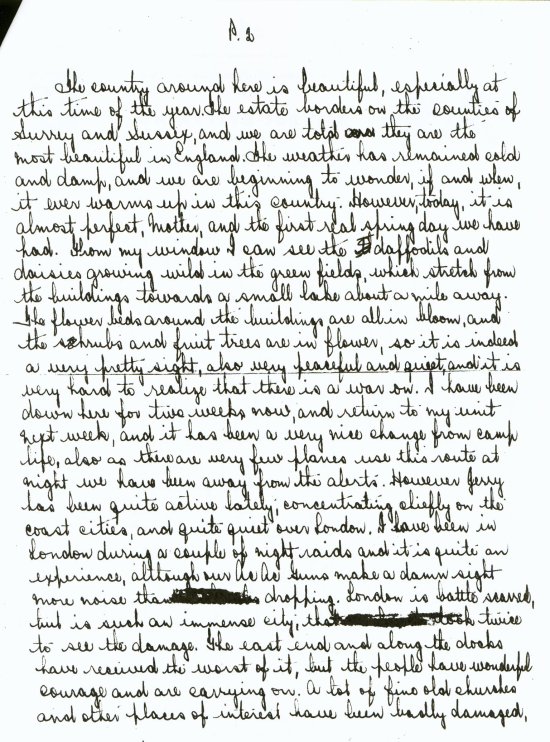 P. 2
The country around here is beautiful, especially at
this time of the year. The estate borders on the counties of
Surrey and Sussex, and we are told they are the
most beautiful in England. The weather has remained cold
and damp, and we are beginning to wonder, if and when,
it ever warms up in this country. However, today, it is
almost perfect, Mother, and the first real spring day we have
had. From my window I can see the daffodils and
daisies growing wild in the green fields, which stretch from
the buildings towards a small lake about a mile away.
The flower beds around the buildings are all in bloom, and
the shrubs and fruit trees are in flower, so it is indeed
a very pretty sight, also very peaceful and quiet, and it is
very hard to realize that there is a war on. I have been
down here for two weeks now, and return to my unit
next week, and it has been a very nice change from camp
life, also as there are very few planes use this route at
night we have been away from the alerts. However Jerry
has been quite active lately, concentrating chiefly on the
coast cities, and quite quiet over London. I have been in
London during a couple of night raids and it is quite an
experience, although our Ac Ac guns make a damn sight
more noise than dropping. London is battle scarred,
but is such an immense city, that look twice
to see the damage. The east end and along the docks
have received the worst of it, but the people have wonderful
courage and are carrying on. A lot of fine old churches
and other places of interest have been badly damaged,